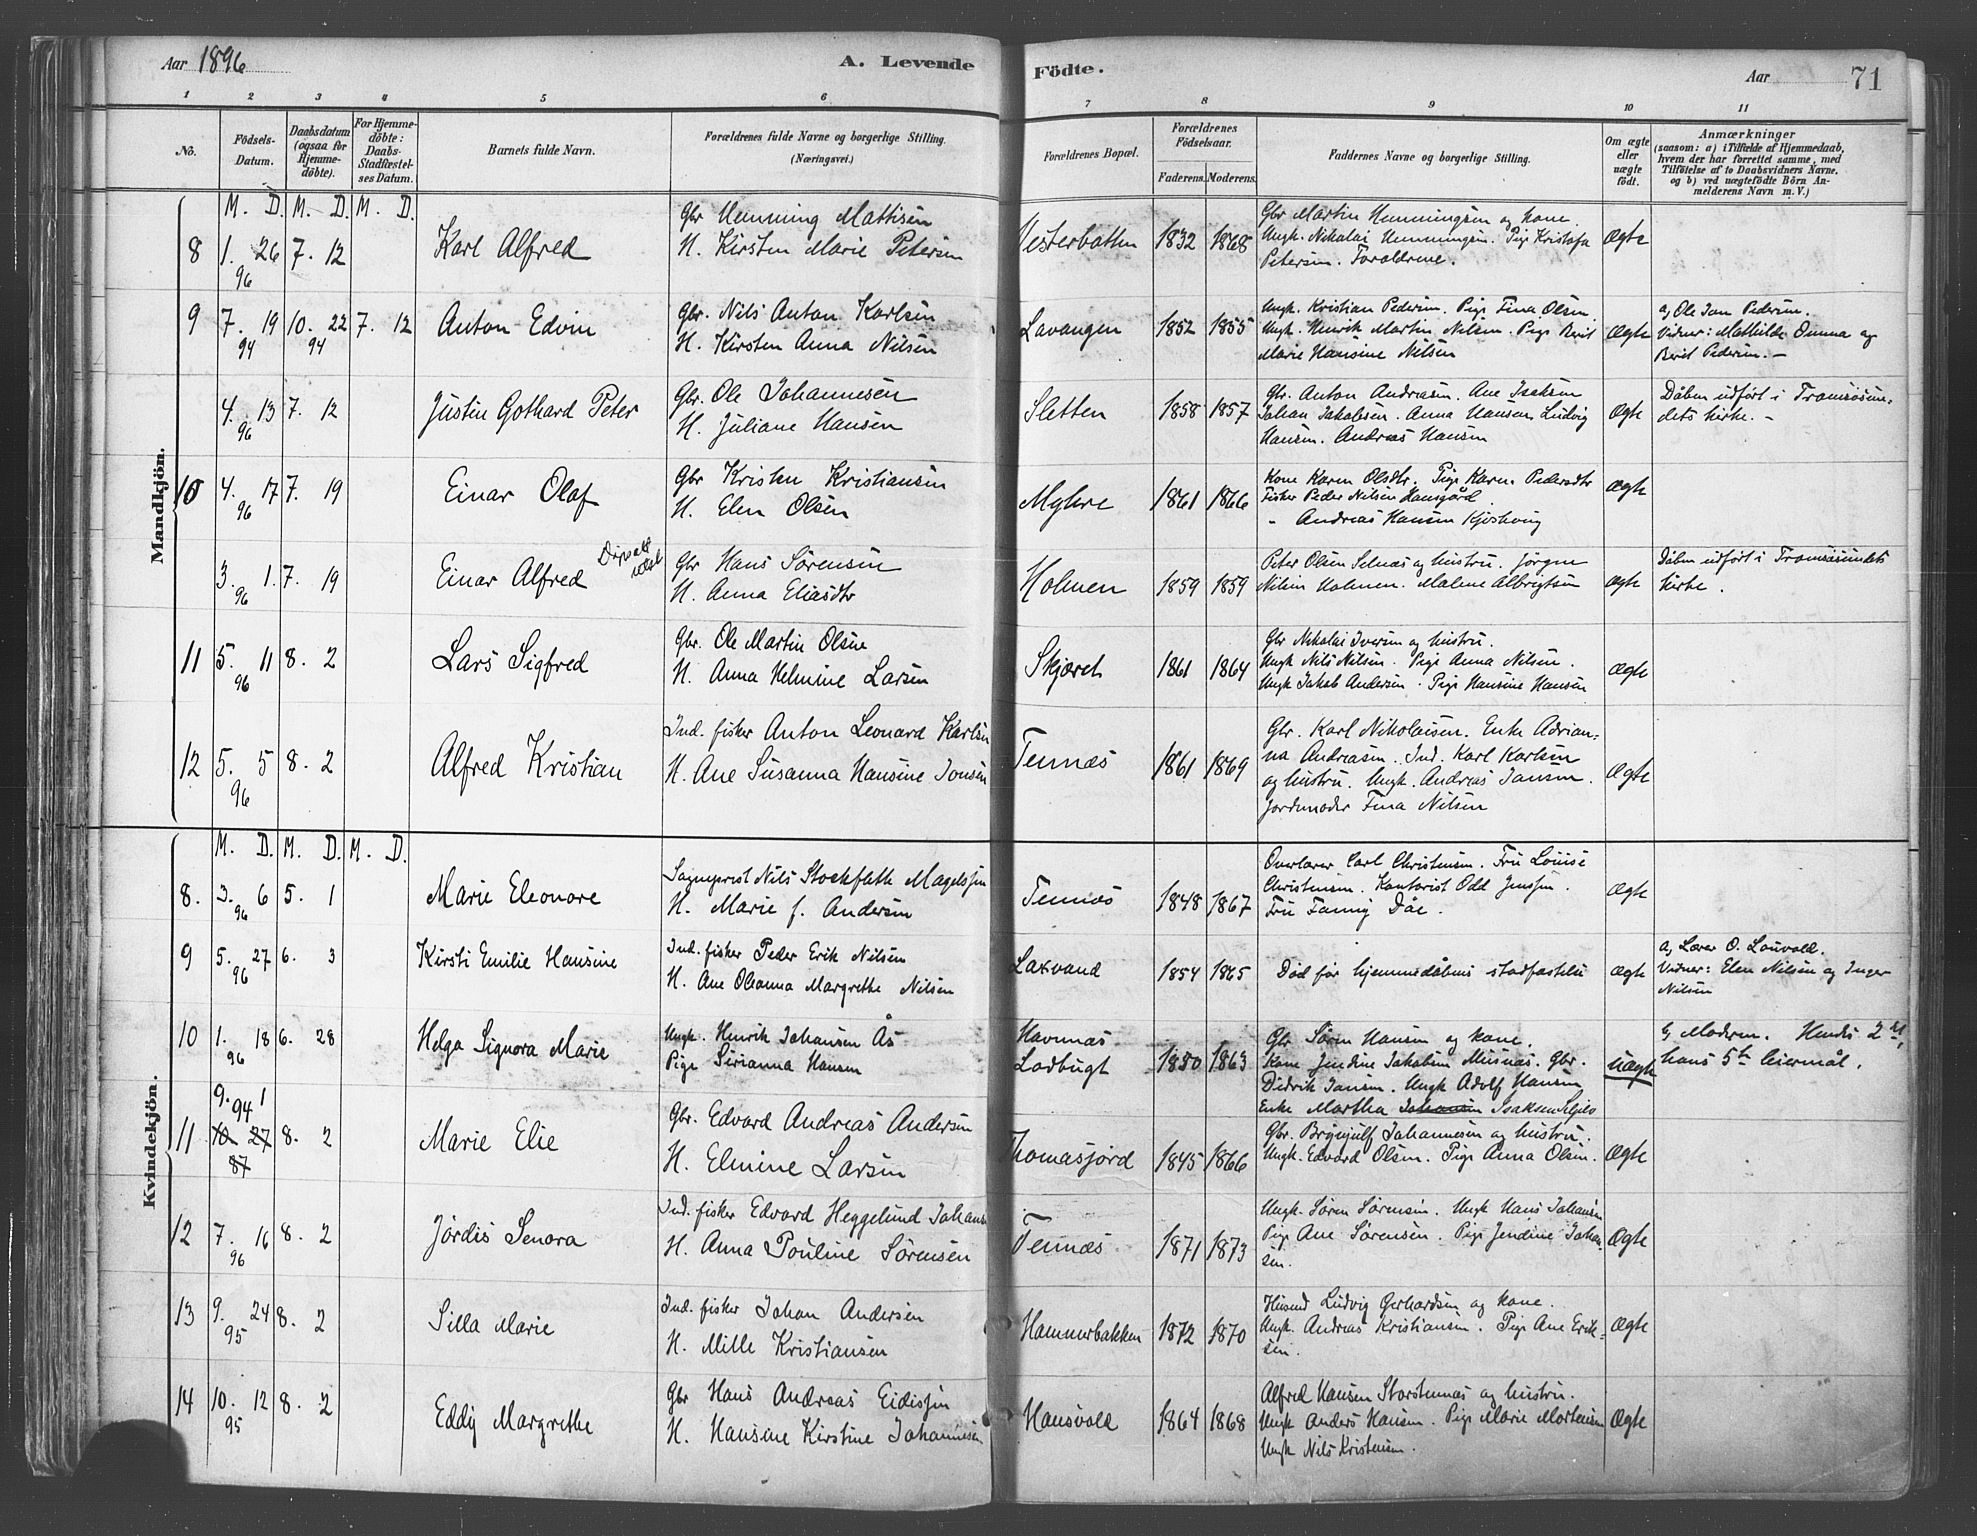 Aar 1896
A. Levende
Födte.
Aar
71
1 2 3 4 5 6 7 8 9 10 11
No.
Födsels-
Datum.
Daabsdatum
(ogsaa for
Hjemme-
döbte).
For Hjemme-
döbte:
Daabs-
Stadfæstel-
ses Datum.
Barnets fulde Navn.
Forældrenes fulde Navne og borgerlige Stilling.
(Næringsvei.)
Forældrenes Bopæl.
Forældrenes
Födselsaar.
Faderens. Moderens.
Faddernes Navne og borgerlige Stilling.
Om ægte
eller
uægte
födt.
Anmærkninger
(saasom: a) i Tilfælde af Hjemmedaab,
hvem der har forrettet samme, med
Tilföielse af to Daabsvidners Navne,
og b) ved uægtefödte Börn An-
melderens Navn m. V.)
Mandkjön.
M. D. M. D. M. D.
8 1. 26 96 7. 12 Karl Alfred
Gbr Hemming Mattisen
H. Kirsten Marie Petersen
Vesterbotten 1832 1868
Gbr Martin Hemmingsen og kone.
Ungk. Nikolai Hemmingsen. Pige Kristofa
Petersen. Forældrene.
Ægte
9 7. 19 94 10. 22 94 7. 12 Anton Edvin
Gbr. Nils Anton Karlsen
H. Kirsten Anna Nilsen
Lavangen 1852 1855
Ungk. Kristian Pedersen. Pige Fina Olsen.
Ungk. Henrik Martin Nilsen. Pige Berit
Marie Hansine Nilsen
Ægte
a, Ole Jan Pedersen.
Vidner: Mathilde Omma og
Berit Pedersen. –
4. 13 96 7. 12 Justin Gothard Peter
Gbr. Ole Johannesen
H. Juliane Hansen
Sletten 1858 1857
Gbr. Anton Andreasen. Ane Isaksen
Johan Jakobsen. Anna Hansen Ludvig
Hansen. Andreas Hansen
Ægte
Dåben udført i Tromsøsun-
dets kirke. –
10 4. 17 96 7. 19 Einar Olaf
Gbr Kristen Kristiansen
H. Elen Olsen
Myhre 1861 1866
Kone Karen Olsdtr. Pige Karen Pedersdtr
Fisker Peder Nilsen Hansgård.
" Andreas Hansen Kjosboug
Ægte
3. 1. 96 7. 19 Einar Alfred
Gbr Hans Sörensen
H. Anna Eliasdtr
Holmen 1859 1859
Peter Olsen Selnæs og hustru. Jørgen
Nilsen Holmen. Malene Albrigtsen
Ægte
Dåben udført i Tromsøsundets
kirke.
11 5. 11 96 8. 2 Lars Sigfred
Gbr. Ole Martin Olsen
H. Anna Helmine Larsen
Skjæret 1861 1864
Gbr Nikolai Iversen og hustru.
Ungk Nils Nilsen. Pige Anna Nilsen.
Ungk Jakob Andersen. Pige Hansine Hansen
Ægte
12 5. 5 96 8. 2 Alfred Kristian
Ind. fisker Anton Leonard Karlsen
H. Ane Susanna Hansine Jonsen
Tennæs 1861 1869
Gbr. Karl Nikolaisen. Enke Adrian-
na Andreasen. Ind. Karl Karlsen
og hustru. Ungk. Andreas Jansen.
Jordmoder Fina Nilsen
Ægte
Kvindekjön.
M. D. M. D. M. D.
8. 3. 6 96 5. 1 Marie Eleonore
Sogneprest Nils Stockfleth Magelssen
H. Marie f. Andersen
Tennæs 1848 1867
Overlærer Carl Christensen. Fru Louise
Christensen. Kontorist Odd Jenssen.
Fru Fanny Dåe.
Ægte
9 5. 27 96 6. 3 Kirsti Emilie Hansine
Ind. fisker Peder Erik Nilsen
H. Ane Oleanna Margrethe Nilsen
Laxvand 1854 1865
Død før hjemmedåbens stadfæstelse
Ægte
a, Lærer O. Louvold.
Vidner: Elen Nilsen og Inger
Nilsen
10 1. 18 96 6. 28 Helga Signora Marie
Ungk. Henrik Johansen Ås
Pige Sirianna Hansen
Havnnæs
Lodbugt 1850 1863
Gbr Søren Hansen og kone.
Kone Jendine Jakobsen Musnæs. Gbr.
Didrik Jansen. Ungk Adolf Hansen
Enke Martha Johansen Isaksen
Uægte
b, Moderen. Hendes 2det,
hans 5te leiermål.
11 9. 1 94 10 27 87 8. 2 Marie Elie
Gbr. Edvard Andreas Andersen
H. Elmine Larsen
Thomasjord 1845 1866
Gbr. Brynjulf Johannesen og hustru.
Ungk. Edvard Olsen. Pige Anna Olsen.
Ægte
12 7. 16 96 8. 2 Jördis Senora
Ind. fisker Edvard Heggelund Johansen
H. Anna Pouline Sørensen
Tennæs 1871 1873
Ungk. Søren Sørensen. Ungk Hans Johansen
Pige Ane Sørensen. Pige Jendine Johan-
sen.
Ægte
13 9. 24 95 8. 2 Silla Marie
Ind. fisker Johan Andersen
H. Mille Kristiansen
Hammerbakken 1872 1870
Husmd Ludvig Gerhardsen og kone.
Ungk. Andreas Kristiansen. Pige Ane Erik-
sen.
Ægte
14 10. 12 95 8. 2 Eddy Margrethe
Gbr Hans Andreas Eidissen
H. Hansine Kirstine Johannesen
Hansvold 1864 1868
Alfred Hansen Storstennæs og hustru.
Ungk Anders Hansen. Pige Marie Mortensen
Ungk Nils Kristensen.
Ægte